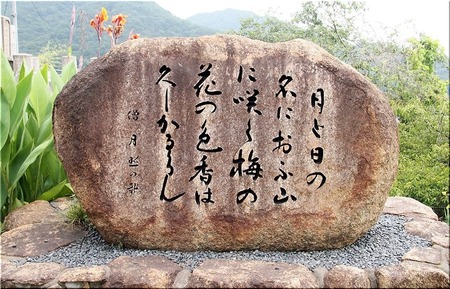 月と日の
名におふ山
に咲く梅の
花の色香は
久しかるらん
僧月照の